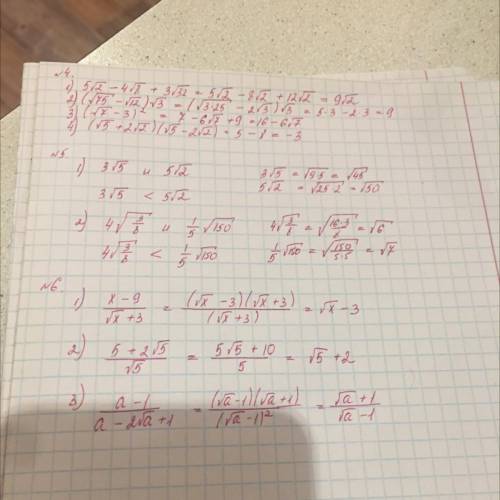 №4.
1) 5√2 - 4√8 + 3√32 = 5√2 - 8√2 + 12√2 = 9√2
2) (√75 - √12)√3 = (√3·25 - 2√3)√3 = 5·3 - 2·3 = 9
3) (√7 - 3)² = 7 - 6√7 + 9 = 16 - 6√7
4) (√5 + 2√2)(√5 - 2√2) = 5 - 8 = -3
№5
1) 3√5 и 5√2 3√5 = √9·5 = √45
3√5 < 5√2 5√2 = √25·2 = √50
2) 4√3/8 и 1/5 √150 4√3/8 = √16·3/8 = √6
4√3/8 < 1/5 √150 1/5 √150 = √150/5·5 = √7
№6.
1) x - 9 / √x + 3 = (√x - 3)(√x + 3) / (√x + 3) = √x - 3
2) 5 + 2√5 / √5 = 5√5 + 10 / 5 = √5 + 2
3) a - 1 / a - 2√a + 1 = (√a - 1)(√a + 1) / (√a - 1)² = √a + 1 / √a - 1